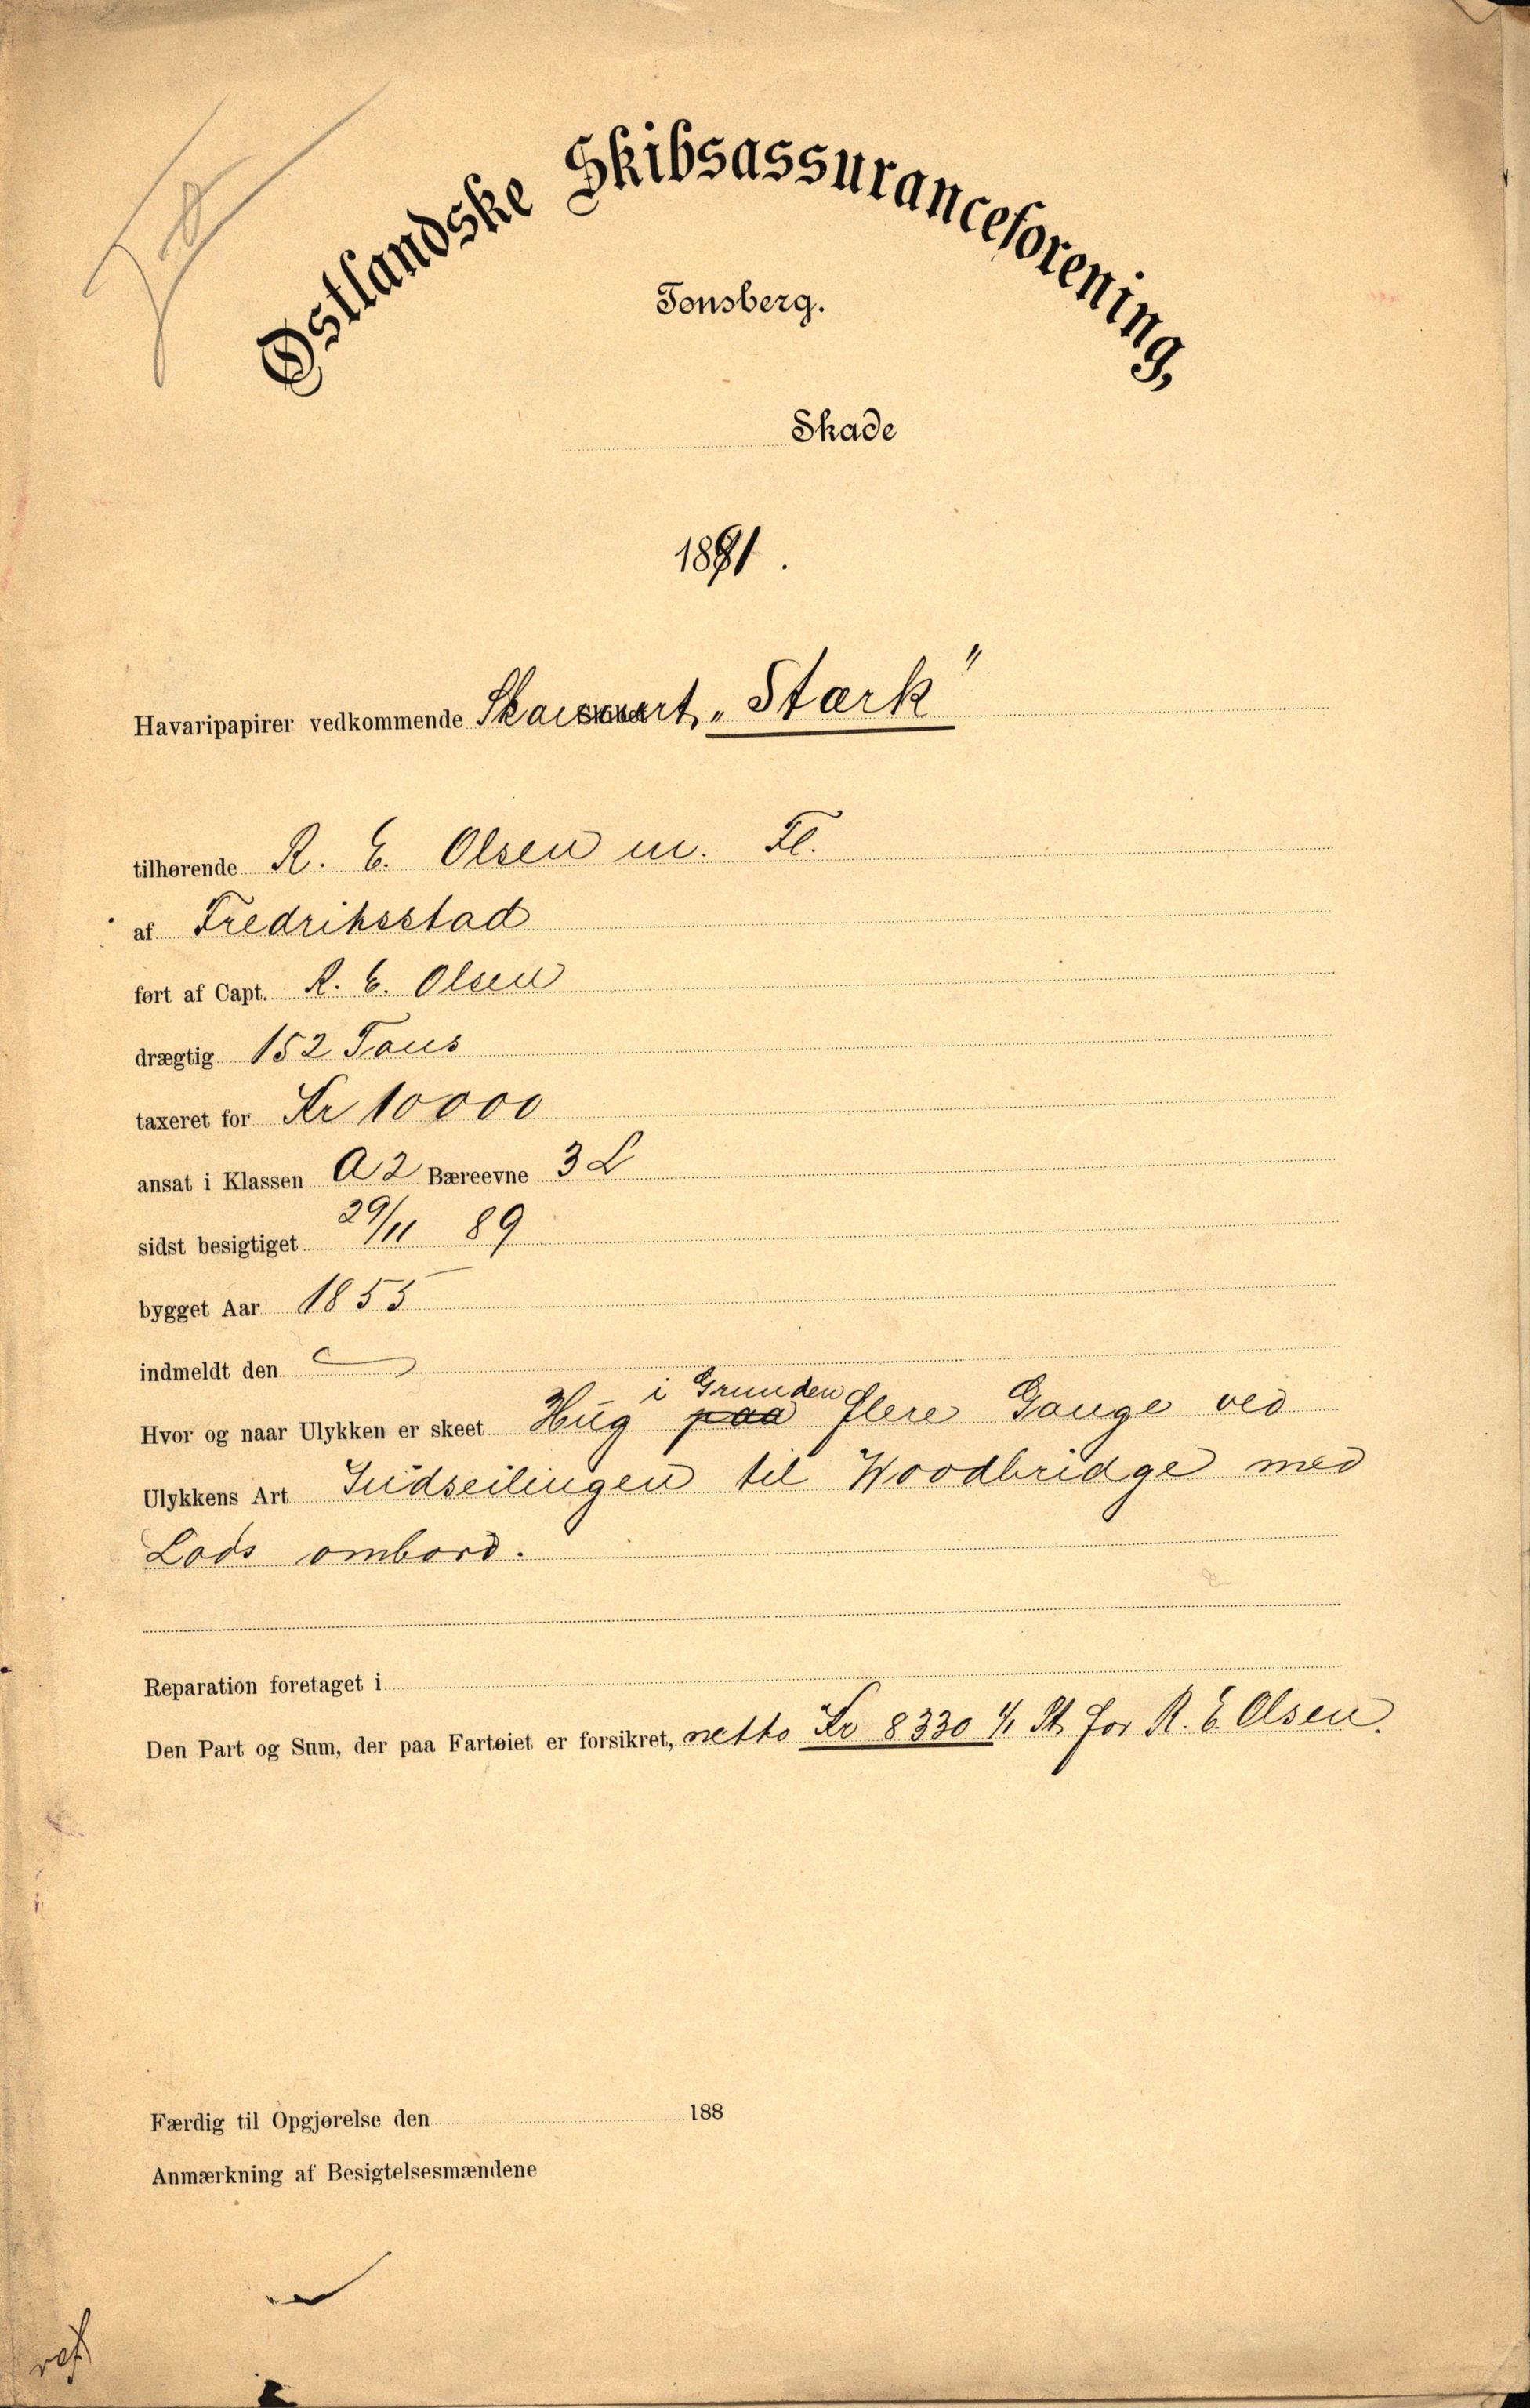 Østlandske Skibsassuranceforening,
Tønsberg.
Skade
1891.
Havaripapirer vedkommende „Stærk"
tilhørende R. E. Olsen m. Fl.
af Fredriksstad
ført af Capt. R. E. Olsen
drægtig 152 Tons
taxeret for Kr 10000
ansat i Klassen A2 Bæreevne 3 L
sidst besigtiget 29/11 89
bygget Aar 1855
indmeldt den
i Grunden
Hvor og naar Ulykken er skeet Hug paa flere Gange ved
Ulykkens Art Indseilingen til Woodbridge med
Lods ombord.
Reparation foretaget i
Den Part og Sum, der paa Fartøiet er forsikret, netto Kr 8330 1/1 St. for R. E. Olsen.
Færdig til Opgjørelse den 188
Anmærkning af Besigtelsesmændene